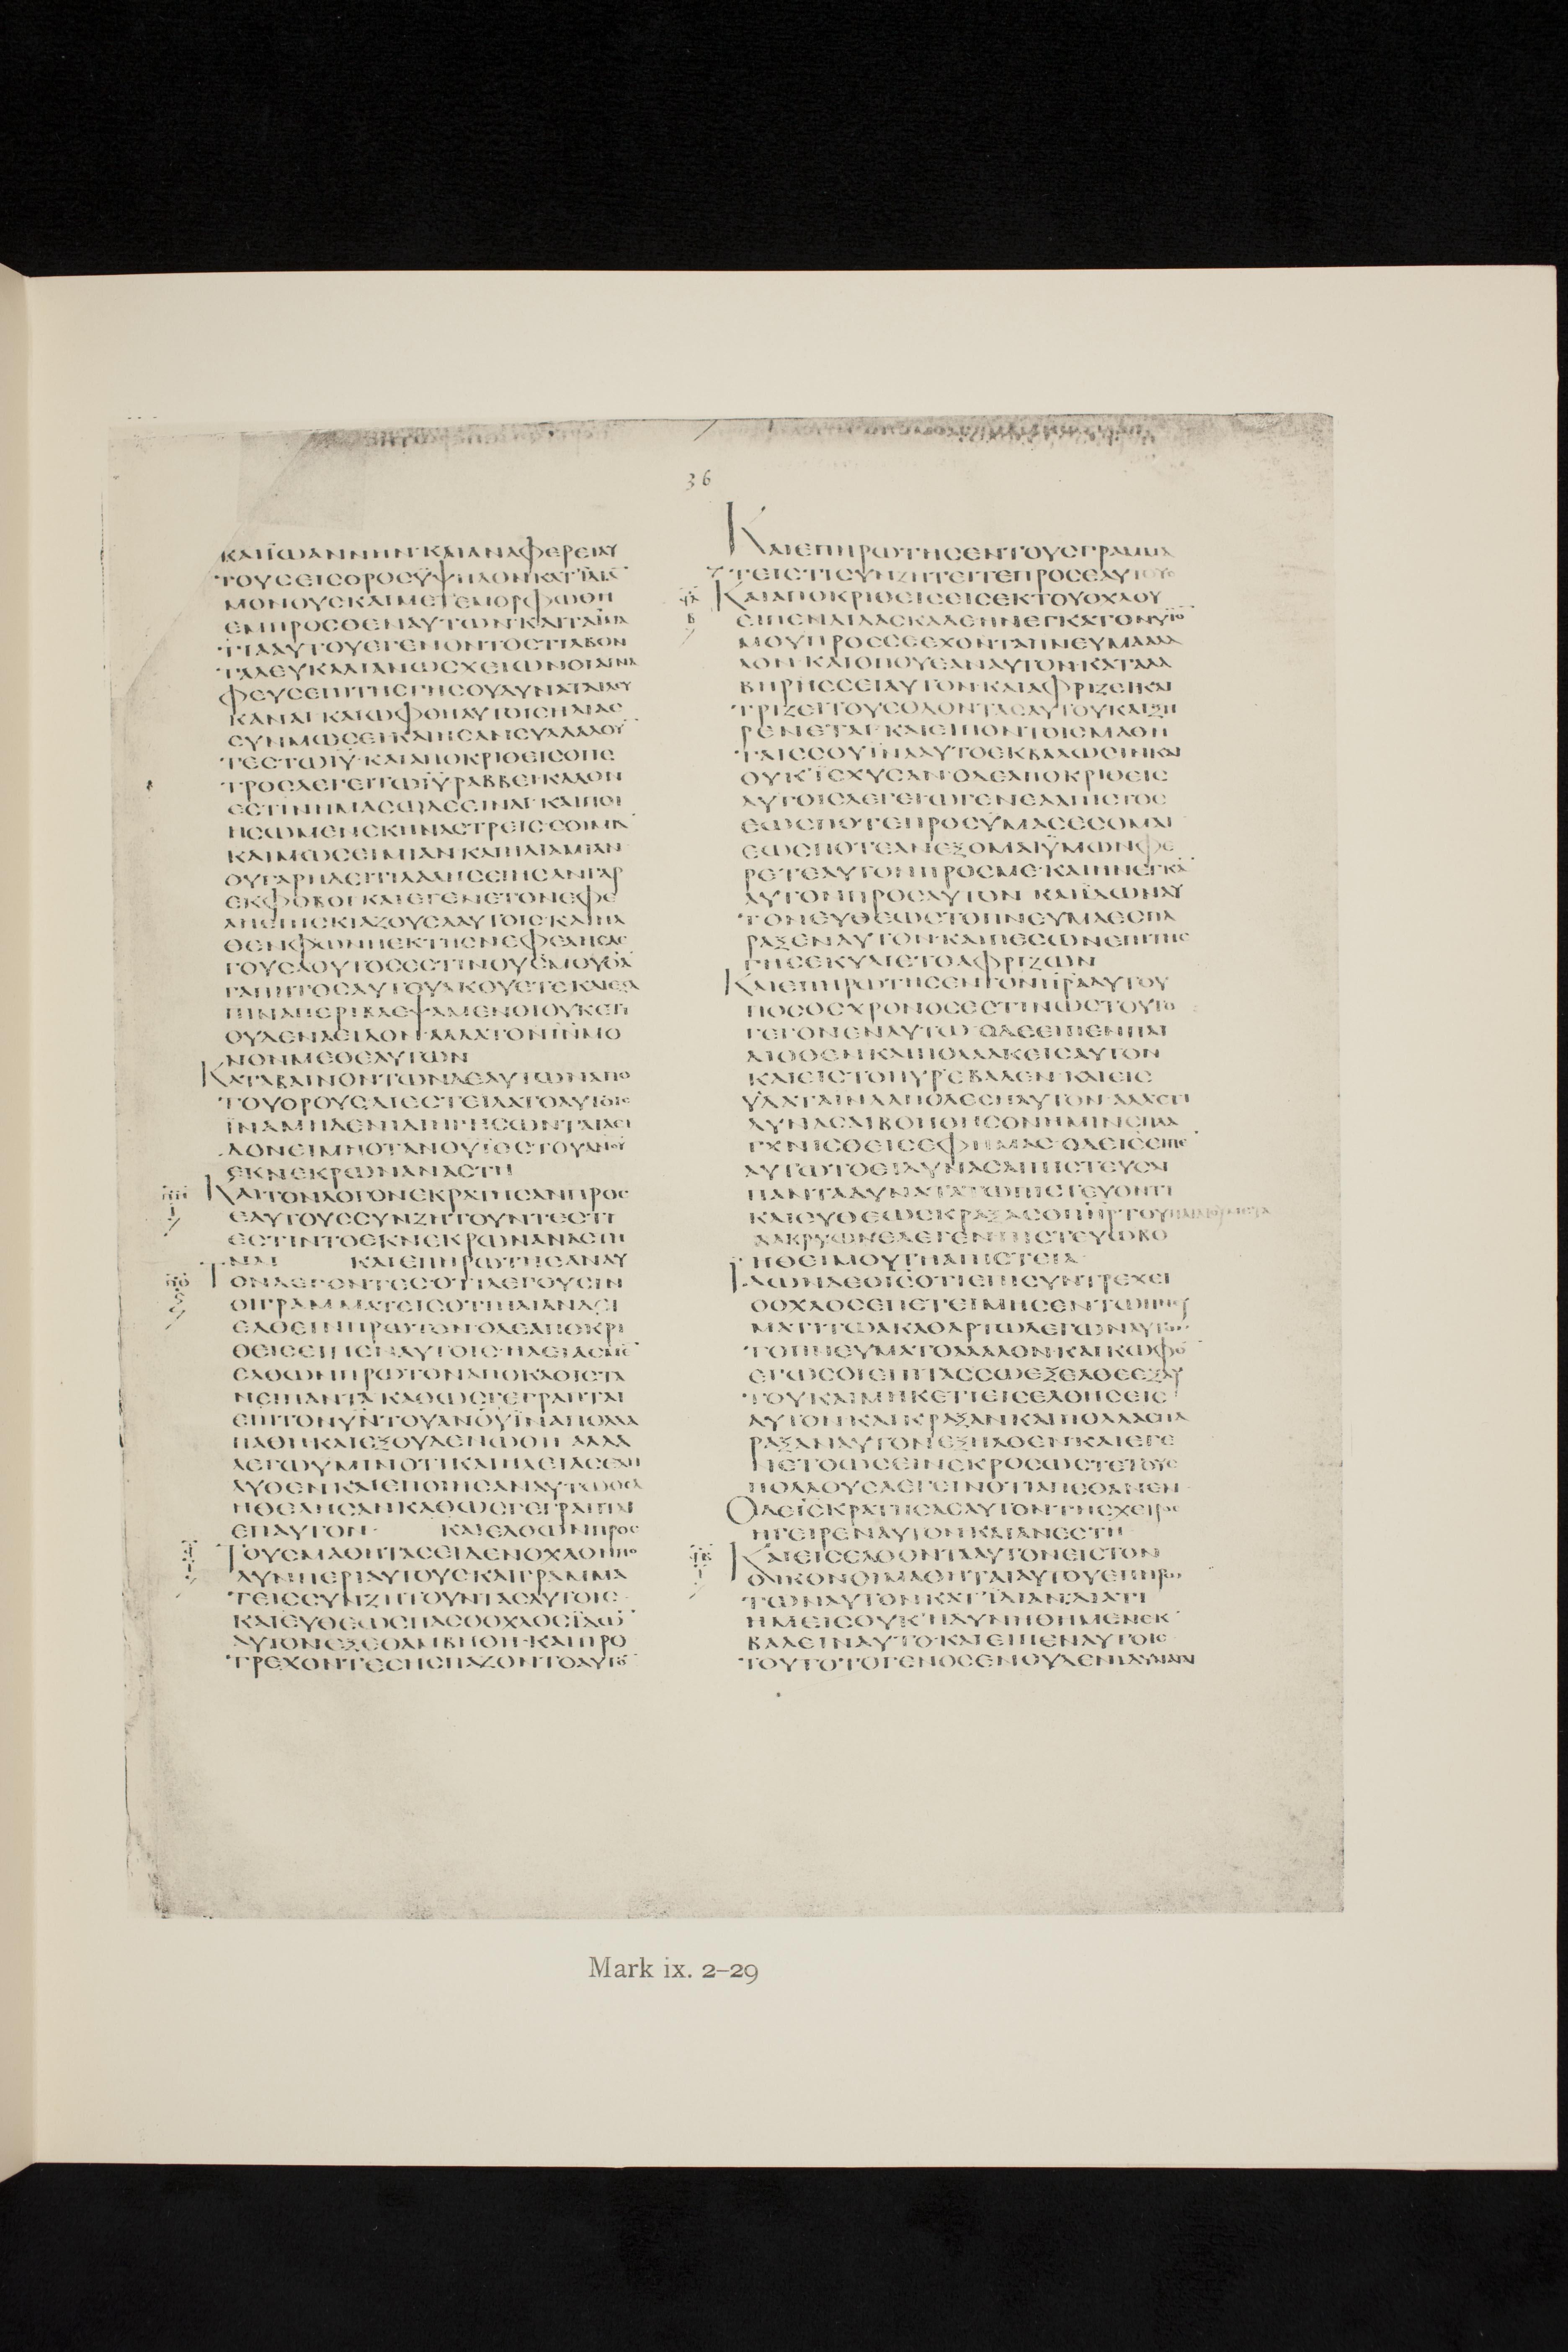 36
ΚΑΙΪΩΑΝΝΗΝ·ΚΑΙΑΝΑΦΕΡΕΙΑΥ
ΤΟΥϹΕΙϹΟΡΟϹΫΨΗΛΟΝΚΑΤΪΔΙΑ̅
ΜΟΝΟΥϹΚΑΙΜΕΤΕΜΟΡΦΩΘΗ
ΕΜΠΡΟϹΘΕΝΑΥΤΩΝ·ΚΑΙΤΑΪΜΑ
ΤΙΑΑΥΤΟΥΕΓΕΝΟΝΤΟϹΤΙΛΒΟΝ
ΤΑΛΕΥΚΑΛΙΑΝΩϹΧΕΙΩΝΟΙΑΓΝΑ
ΦΕΥϹΕΠΙΤΗϹΓΗϹΟΥΔΥΝΑΤΑΙΛΕΥ
ΚΑΝΑΙ·ΚΑΙΩΦΘΗΑΥΤΟΙϹΗΛΙΑϹ
ϹΥΝΜΩϹΕΙ·ΚΑΙΗϹΑΝϹΥΛΛΑΛΟΥ̅
ΤΕϹΤΩΙΥ̅·ΚΑΙΑΠΟΚΡΙΘΕΙϹΟΠΕ
ΤΡΟϹΛΕΓΕΙΤΩΙΥ̅ΡΑΒΒΕΙ·ΚΑΛΟΝ
ΕϹΤΙΝΗΜΑϹΩΔΕΕΙΝΑΙ·ΚΑΙΠΟΙ
ΗϹΩΜΕΝϹΚΗΝΑϹΤΡΕΙϹ·ϹΟΙΜΙΑ̅
ΚΑΙΜΩϹΕΙΜΙΑΝ·ΚΑΙΗΛΙΑΜΙΑΝ
ΟΥΓΑΡΗΔΕΙΤΙΛΑΛΗϹΕΙΗϹΑΝΓΑΡ
ΕΚΦΟΒΟΙ·ΚΑΙΕΓΕΝΕΤΟΝΕΦΕ
ΛΗΕΠΙϹΚΙΑΖΟΥϹΑΑΥΤΟΙϹ·ΚΑΙΗΛ
ΘΕΝΦΩΝΗΕΚΤΗϹΝΕΦΕΛΗϹΛΕ
ΓΟΥϹΑΟΥΤΟϹΕϹΤΙΝΟΥϹΜΟΥΟΑ
ΓΑΠΗΤΟϹΑΥΤΟΥΑΚΟΥΕΤΕ·ΚΑΙΕΞΑ
ΠΙΝΑΠΕΡΙΒΛΕΨΑΜΕΝΟΙΟΥΚΕΤΙ
ΟΥΔΕΝΑΕΙΔΟΝ·ΑΛΛΑΤΟΝΙΝ̅ΜΟ
ΝΟΝΜΕΘΕΑΥΤΩΝ
ΚΑΤΑΒΑΙΝΟΝΤΩΝΔΕΑΥΤΩΝΑΠΟ
ΤΟΥΟΡΟΥϹΔΙΕϹΤΕΙΛΑΤΟΑΥΤΟΙϹ
ΪΝΑΜΗΔΕΝΙΔΙΗΓΗϹΩΝΤΑΙΑΕΙ
ΔΟΝΕΙΜΗΟΤΑΝΟΥΪΟϹΤΟΥΑΝΟΥ̅
ΕΚΝΕΚΡΩΝΑΝΑϹΤΗ
ΚΑΙΤΟΝΛΟΓΟΝΕΚΡΑΤΗϹΑΝΠΡΟϹ
ΕΑΥΤΟΥϹϹΥΝΖΗΤΟΥΝΤΕϹΤΙ
ΕϹΤΙΝΤΟΕΚΝΕΚΡΩΝΑΝΑϹΤΗ
ΝΑΙ ΚΑΙΕΠΗΡΩΤΗϹΑΝΑΥ
ΤΟΝΛΕΓΟΝΤΕϹΟΤΙΛΕΓΟΥϹΙΝ
ΟΙΓΡΑΜΜΑΤΕΙϹΟΤΙΗΛΙΑΝΔΕΙ
ΕΛΘΕΙΝΠΡΩΤΟΝ·ΟΔΕΑΠΟΚΡΙ
ΘΕΙϹΕΙΠΕΝΑΥΤΟΙϹ·ΗΛΕΙΑϹΜΕ̅
ΕΛΘΩΝΠΡΩΤΟΝΑΠΟΚΑΘΙϹΤΑ
ΝΕΙΠΑΝΤΑ·ΚΑΘΩϹΓΕΓΡΑΠΤΑΙ
ΕΠΙΤΟΝΥΝ̅ΤΟΥΑΝΟΥ̅ΪΝΑΠΟΛΛΑ
ΠΑΘΗ·ΚΑΙΕΞΟΥΔΕΝΩΘΗ ΑΛΛΑ
ΛΕΓΩΥΜΙΝΟΤΙΚΑΙΗΛΕΙΑϹΕΛΗ
ΛΥΘΕΝ·ΚΑΙΕΠΟΙΗϹΑΝΑΥΤΩΟϹΑ
ΗΘΕΛΗϹΑΝ·ΚΑΘΩϹΓΕΓΡΑΠΤΑΙ
ΕΠΑΥΤΟΝ· ΚΑΙΕΛΘΩΝΠΡΟϹ
ΤΟΥϹΜΑΘΗΤΑϹΕΙΔΕΝΟΧΛΟΝΠΟ
ΛΥΝΠΕΡΙΑΥΤΟΥϹ·ΚΑΙΓΡΑΜΜΑ
ΤΕΙϹϹΥΝΖΗΤΟΥΝΤΑϹΑΥΤΟΙϹ·
ΚΑΙΕΥΘΕΩϹΠΑϹΟΟΧΛΟϹΪΔΩ̅
ΑΥΤΟΝΕΞΕΘΑΜΒΗΘΗ·ΚΑΙΠΡΟ
ΤΡΕΧΟΝΤΕϹΗϹΠΑΖΟΝΤΟΑΥΤΟ̅
ΚΑΙΕΠΗΡΩΤΗϹΕΝΤΟΥϹΓΡΑΜΜΑ
ΤΕΙϹΤΙϹΥΝΖΗΤΕΙΤΕΠΡΟϹΕΑΥΤΟΥϹ
ΚΑΙΑΠΟΚΡΙΘΕΙϹΕΙϹΕΚΤΟΥΟΧΛΟΥ
ΕΙΠΕΝΔΙΔΑϹΚΑΛΕΗΝΕΓΚΑΤΟΝΥΪΟ̅
ΜΟΥΠΡΟϹϹΕΕΧΟΝΤΑΠΝΕΥΜΑΑΛΑ
ΛΟΝ·ΚΑΙΟΠΟΥΕΑΝΑΥΤΟΝ·ΚΑΤΑΛΑ
ΒΗΡΗϹϹΕΙΑΥΤΟΝ·ΚΑΙΑΦΡΙΖΕΙ·ΚΑΙ
ΤΡΙΖΕΙΤΟΥϹΟΔΟΝΤΑϹΑΥΤΟΥΚΑΙΞΗ
ΡΕΝΕΤΑΙ·ΚΑΙΕΙΠΟΝΤΟΙϹΜΑΘΗ
ΤΑΙϹϹΟΥΪΝΑΑΥΤΟΕΚΒΑΛΩϹΙΝΚΑΙ
ΟΥΚΪϹΧΥϹΑΝ·ΟΔΕΑΠΟΚΡΙΘΕΙϹ
ΑΥΤΟΙϹΛΕΓΕΙΩΓΕΝΕΑΑΠΙϹΤΟϹ
ΕΩϹΠΟΤΕΠΡΟϹΫΜΑϹΕϹΟΜΑΙ
ΕΩϹΠΟΤΕΑΝΕΞΟΜΑΙΫΜΩΝΦΕ
ΡΕΤΕΑΥΤΟΝΠΡΟϹΜΕ·ΚΑΙΗΝΕΓΚΑ̅
ΑΥΤΟΝΠΡΟϹΑΥΤΟΝ ΚΑΙΪΔΩΝΑΥ
ΤΟΝΕΥΘΕΩϹΤΟΠΝΕΥΜΑΕϹΠΑ
ΡΑΞΕΝΑΥΤΟΝ·ΚΑΙΠΕϹΩΝΕΠΙΤΗϹ
ΓΗϹΕΚΥΛΙΕΤΟΑΦΡΙΖΩΝ
ΚΑΙΕΠΗΡΩΤΗϹΕΝΤΟΝΠΡΑ̅ΑΥΤΟΥ
ΠΟϹΟϹΧΡΟΝΟϹΕϹΤΙΝΩϹΤΟΥΤΟ
ΓΕΓΟΝΕΝΑΥΤΩ·ΟΔΕΕΙΠΕΝΠΑΙ
ΔΙΟΘΕΝ·ΚΑΙΠΟΛΛΑΚΕΙϹΑΥΤΟΝ
ΚΑΙΕΙϹΤΟΠΥΡΕΒΑΛΕΝ·ΚΑΙΕΙϹ
ΥΔΑΤΑΪΝΑΑΠΟΛΕϹΗΑΥΤΟΝ·ΑΛΛΕΙΤΙ
ΔΥΝΑϹΑΙΒΟΗΘΗϹΟΝΗΜΙΝϹΠΛΑ
ΓΧΝΙϹΘΕΙϹΕΦΗΜΑϹ·ΟΔΕΙϹ̅ΕΙΠΕ̅
ΑΥΤΩΤΟΕΙΔΥΝΑϹΑΙΠΙϹΤΕΥϹΑΙ
ΠΑΝΤΑΔΥΝΑΤΑΤΩΠΙϹΤΕΥΟΝΤΙ
ΚΑΙΕΥΘΕΩϹΚΡΑΞΑϹΟΠΗΡ̅ΤΟΥΠΑΙΔΙΟΥΜΕΤΑ
ΔΑΚΡΥΩΝΕΛΕΓΕΝΠΙϹΤΕΥΩΒΟ
ΗΘΕΙΜΟΥΤΗΑΠΙϹΤΕΙΑ·
ΪΔΩΝΔΕΟΙϹ̅ΟΤΙΕΠΙϹΥΝΤΡΕΧΕΙ
ΟΟΧΛΟϹΕΠΕΤΕΙΜΗϹΕΝΤΩΠΝΕΥ
ΜΑΤΙΤΩΑΚΑΘΑΡΤΩΛΕΓΩΝΑΥΤΩ·
ΤΟΠΝΕΥΜΑΤΟΑΛΑΛΟΝ·ΚΑΙΚΩΦΟ̅
ΕΓΩϹΟΙΕΠΙΤΑϹϹΩΕΞΕΛΘΕΕΞΑΥ
ΤΟΥΚΑΙΜΗΚΕΤΙΕΙϹΕΛΘΗϹΕΙϹ
ΑΥΤΟΝ·ΚΑΙΚΡΑΞΑΝΚΑΙΠΟΛΛΑϹΠΑ
ΡΑΞΑΝΑΥΤΟΝΕΞΗΛΘΕΝ·ΚΑΙΕΓΕ
ΝΕΤΟΩϹΕΙΝΕΚΡΟϹΩϹΤΕΤΟΥϹ
ΠΟΛΛΟΥϹΛΕΓΕΙΝΟΤΙΑΠΕΘΑΝΕΝ·
ΟΔΕΙϹ̅ΚΡΑΤΗϹΑϹΑΥΤΟΝΤΗϹΧΕΙΡΟϹ
ΗΓΕΙΡΕΝΑΥΤΟΝ·ΚΑΙΑΝΕϹΤΗ
ΚΑΙΕΙϹΕΛΘΟΝΤΑΑΥΤΟΝΕΙϹΤΟΝ
ΟΙΚΟΝΟΙΜΑΘΗΤΑΙΑΥΤΟΥΕΠΗΡΩ
ΤΩΝΑΥΤΟΝΚΑΤΪΔΙΑΝ·ΔΙΑΤΙ
ΗΜΕΙϹΟΥΚΗΔΥΝΗΘΗΜΕΝΕΚ
ΒΑΛΕΙΝΑΥΤΟ·ΚΑΙΕΙΠΕΝΑΥΤΟΙϹ
ΤΟΥΤΟΤΟΓΕΝΟϹΕΝΟΥΔΕΝΙΔΥΝΑΤΑΙ
Mark ix. 2–29